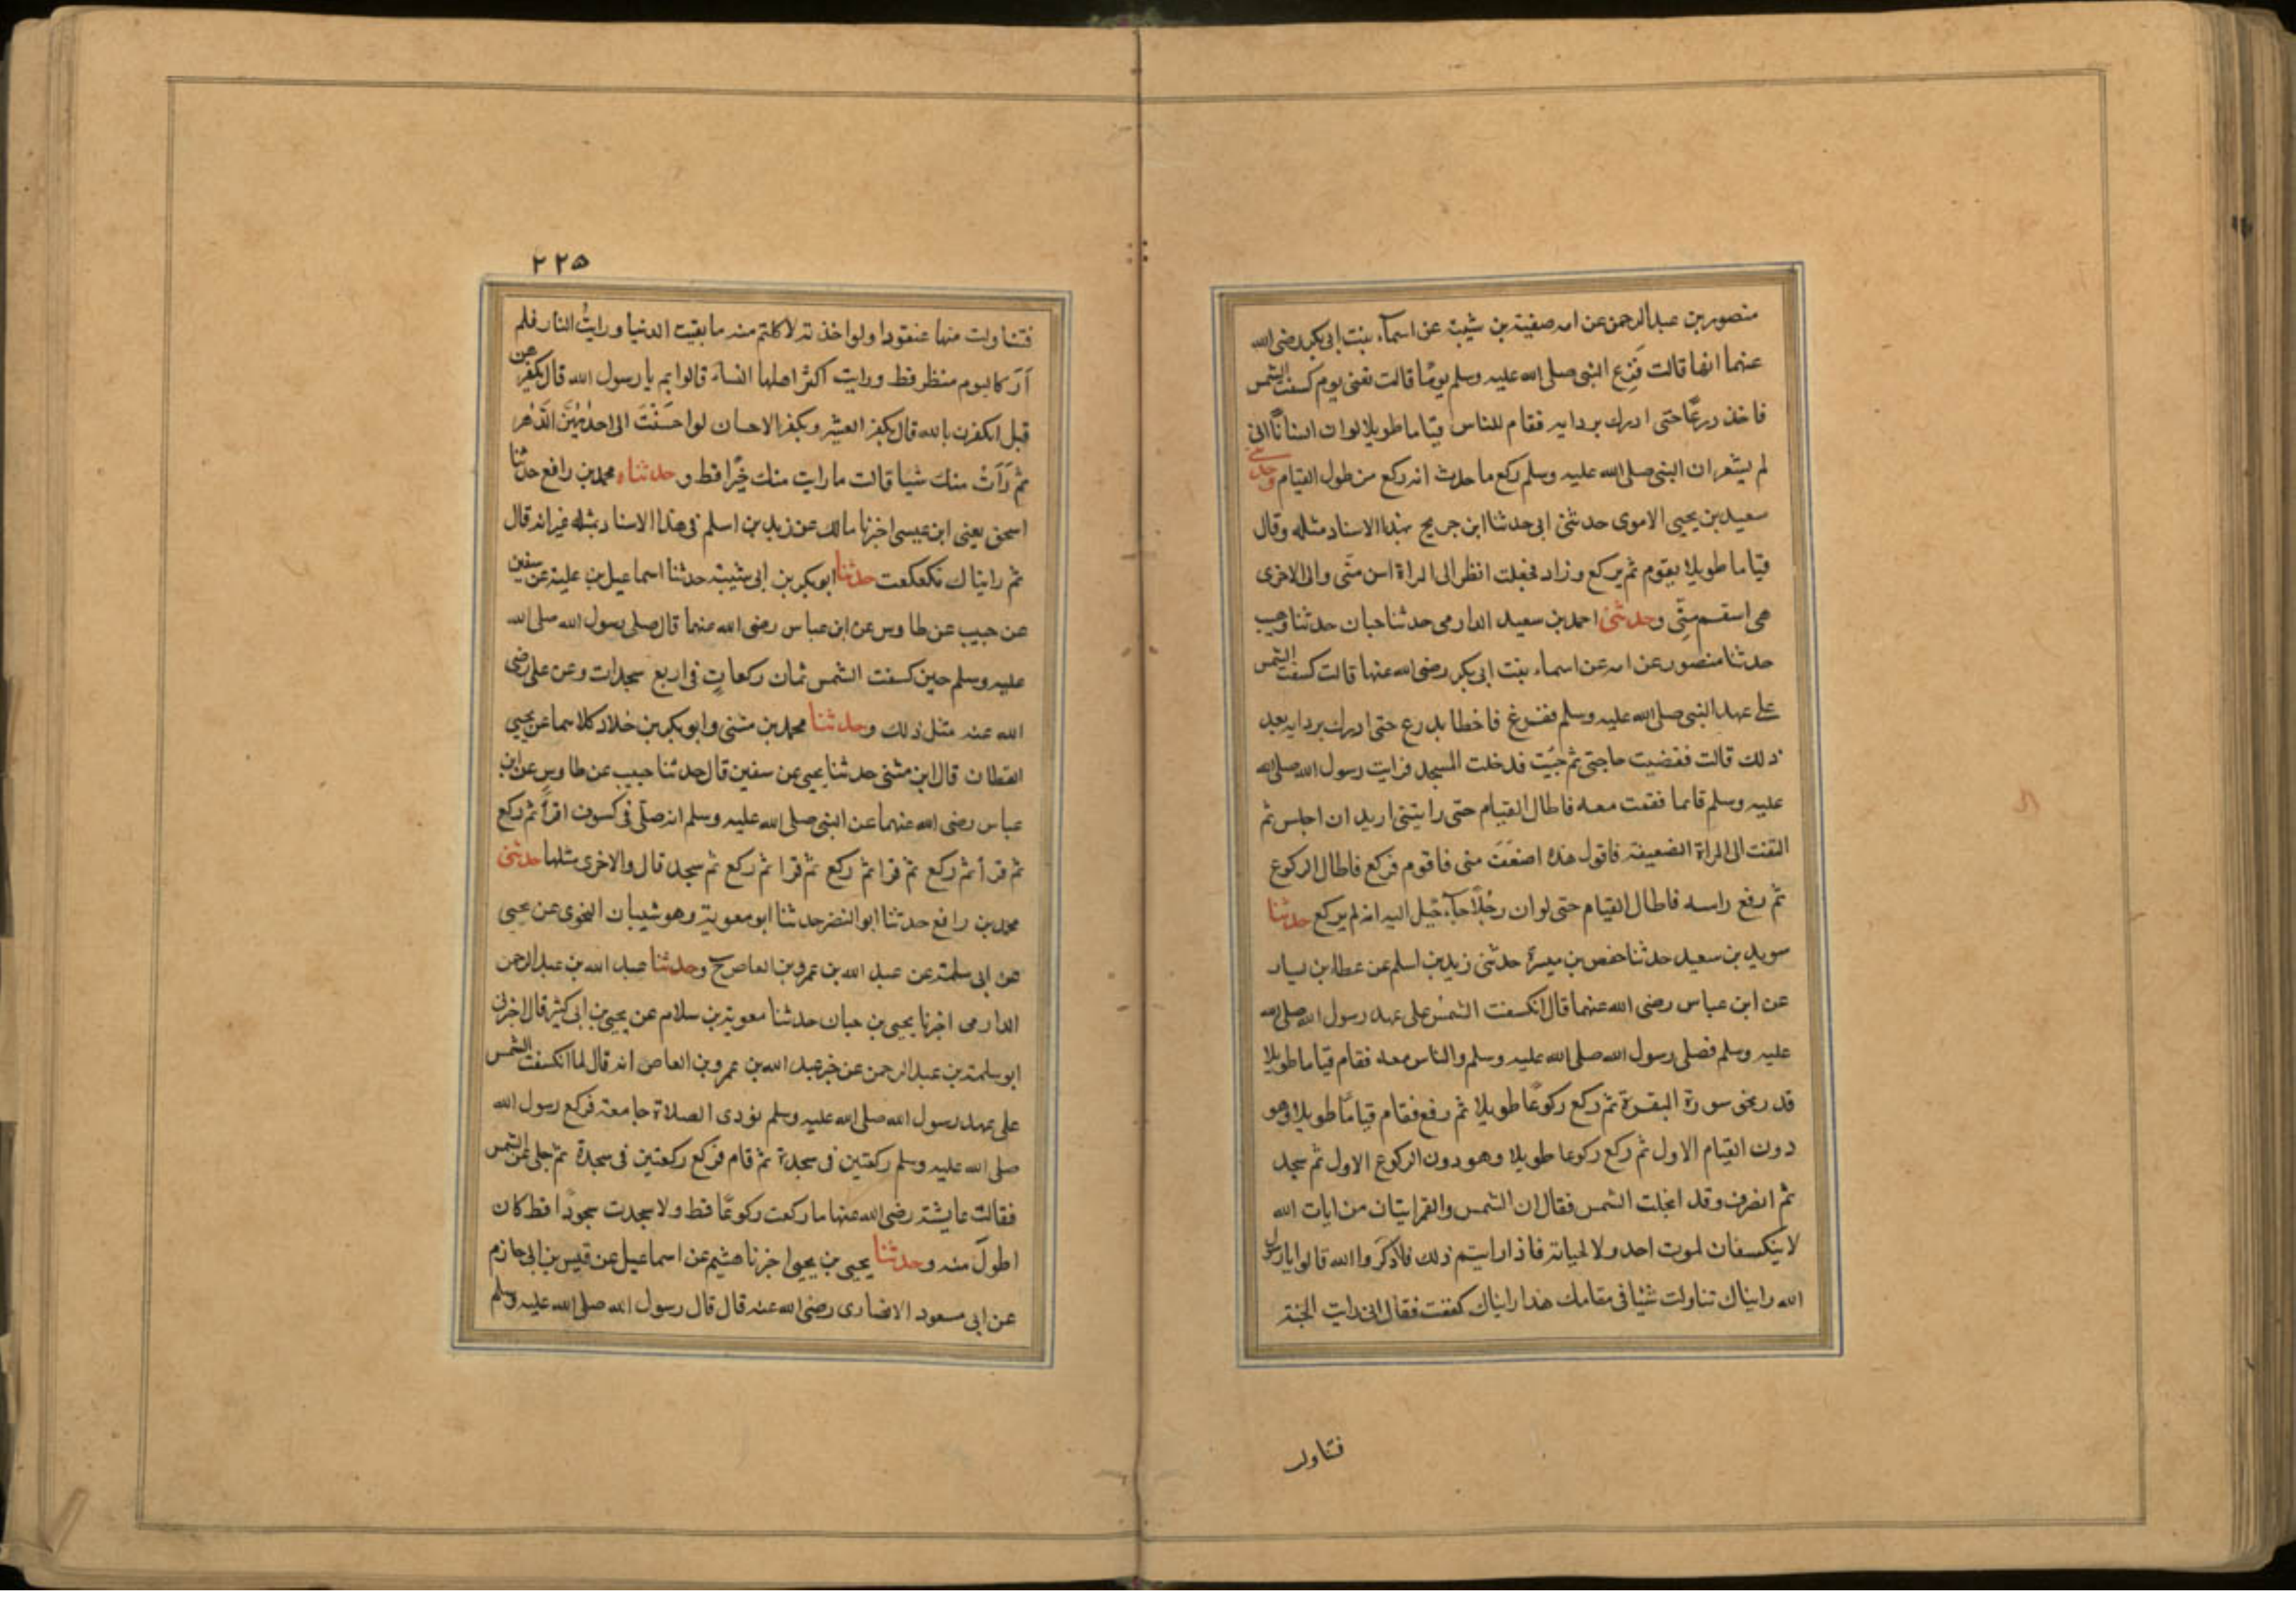 منصور بن عبدالرحمن عن امه صفية بن شيبة عن اسمآء بنت ابى بكر رضى الله
عنهما انها قالت فزع النبى صلى الله عليه وسلم يومًا قالت تعنى يوم كسفت الشمس
فاخذ درعًا حتى ادرك بردايه فقام للناس قياما طويلا لو ان انسانًا اتى
لم يشعر ان النبى صلى الله عليه وسلم ركع ما حدث انه ركع من طول القيام وحدثنى
سعيد بن يحيى الاموى حدثنى ابى حدثنا ابن جريج بهذا الاسناد مثله وقال
قياما طويلا يقوم ثم يركع وزاد فجعلت انظر الى المراة اسن منّى والى الاخرى
هى اسقم منّى وحدثنى احمد بن سعيد الدارمى حدثنا حبان حدثنا وهيب
حدثنا منصور عن امه عن اسماء بنت ابى بكر رضى الله عنها قالت كسفت الشمس
على عهد النبى صلى الله عليه وسلم ففزع فاخطا بدرع حتى ادرك بردايه بعد
ذلك قالت فقضيت حاجتى ثم جيت فدخلت المسجد فرايت رسول الله صلى الله
عليه وسلم قائما فقمت معه فاطال القيام حتى رايتنى اريد ان اجلس ثم
التفت الى المراة الضعيفة فاقول هذه اضعَفَ منى فاقوم فركع فاطال الركوع
ثم رفع راسه فاطال القيام حتى لو ان رجُلًا جآء خيل اليه انه لم يركع حدثنا
سويد بن سعيد حدثنا حفص بن ميسرة حدثنى زيد بن اسلم عن عطاء بن يسار
عن ابن عباس رضى الله عنهما قال انكسفت الشمس على عهد رسول الله صلى الله
عليه وسلم فصلى رسول الله صلى الله عليه وسلم والناس معه فقام قياما طويلا
قدر نحو سورة البقرة ثم ركع ركوعًا طويلا ثم رفع فقام قيامًا طويلا وهو
دون القيام الاول ثم ركع ركوعا طويلا وهو دون الركوع الاول ثم سجد
ثم انصرف وقد انجلت الشمس فقال ان الشمس والقمر ايتان من ايات الله
لا ينكسفان لموت احد ولا لحياته فاذا رايتم ذلك فاذكروا الله قالوا يا رسول
الله رايناك تناولت شيئا فى مقامك هذا رايناك كففت فقال انى رايت الجنة
فتناولت
٢٢٥
فتناولت منها عنقودا ولو اخذته لاكلتم منه ما بقيت الدنيا ورايتُ النار فلم
اَرَ كاليوم منظر قط ورايت اكثر اهلها النساء قالوا بم يا رسول الله قال بكفرهن
قيل ايكفرن بالله قال بكفر العشير وبكفر الاحسان لو احسَنْتَ الى احدٰيهُنّ الدَّهر
ثم رَاَتْ منك شيا قالت ما رايت منك خيرًا قط وحدثناه محمد بن رافع حدثنا
اسحق يعنى ابن عيسى اخبرنا مالك عن زيد بن اسلم فى هذا الاسناد بمثله غير انه قال
ثم رايناك تكعكعت حدثنا ابو بكر بن ابى شيبة حدثنا اسماعيل بن علية عن سفين
عن حبيب عن طاوس عن ابن عباس رضى الله عنهما قال صلى رسول الله صلى الله
عليه وسلم حين كسفت الشمس ثمان ركعاتٍ فى اربع سجدات وعن على رضى
الله عنه مثل ذلك وحدثنا محمد بن مثنى وابو بكر بن خلاد كلاهما عن يحيى
القطان قال ابن مثنى حدثنا يحيى عن سفين قال حدثنا حبيب عن طاوس عن ابن
عباس رضى الله عنهما عن النبى صلى الله عليه وسلم انه صلّى فى كسوف اقرأ ثم ركع
ثم قرأ ثم ركع ثم قرا ثم ركع ثم قرا ثم ركع ثم سجد قال والاخرى مثلها حدثنى
محمد بن رافع حدثنا ابو النضر حدثنا ابو معوية وهو شيبان النحوى عن يحيى
عن ابى سلمة عن عبد الله بن عمرو بن العاص ح وحدثنا عبد الله بن عبدالرحمن
الدارمى اخبرنا يحيى بن حبان حدثنا معوية بن سلام عن يحيى بن ابى كثير قال اخبرنى
ابو سلمة بن عبدالرحمن عن خبر عبد الله بن عمرو بن العاص انه قال لما انكسفت الشمس
على عهد رسول الله صلى الله عليه وسلم نودى الصلاة جامعة فركع رسول الله
صلى الله عليه وسلم ركعتين فى سجدة ثم قام فركع ركعتين فى سجدة ثم جلى عن الشمس
فقالت عايشة رضى الله عنها ما ركعت ركوعًا قط ولا سجدت سجودًا قط كان
اطول منه وحدثنا يحيى بن يحيى اخبرنا هشيم عن اسماعيل عن قيس بن ابى حازم
عن ابى مسعود الانصارى رضى الله عنه قال قال رسول الله صلى الله عليه وسلم